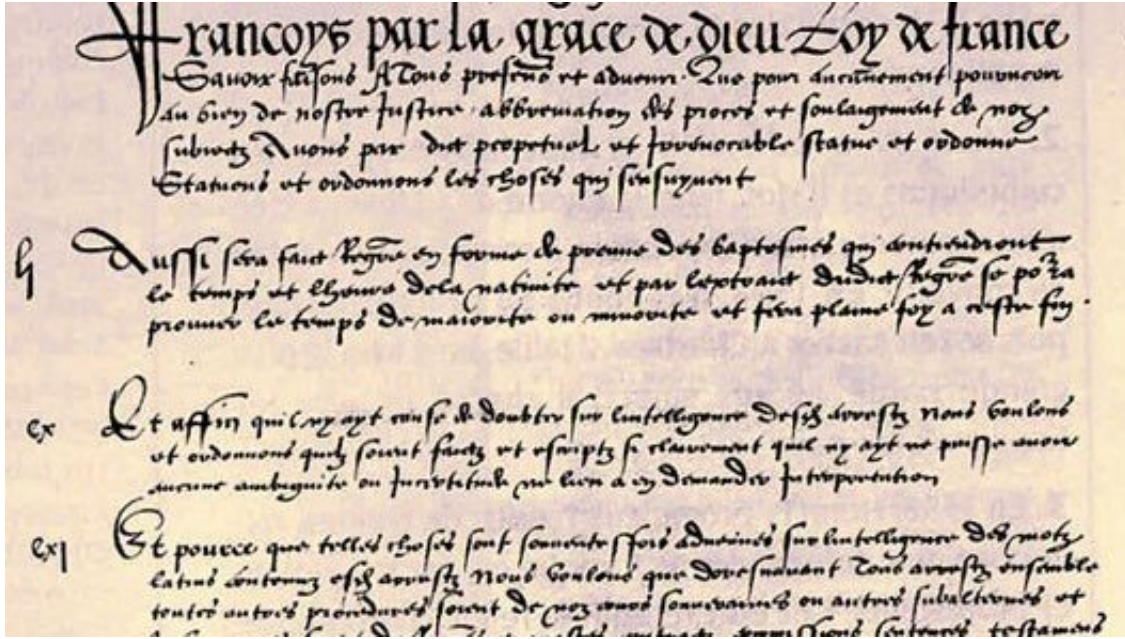 Francoys par la grace de dieu Roy de france
Savoir faisons A Tous presens et advenir Que pour aucunement pourveoir
au bien de nostre Justice abbreviation des proces et soulaigement de noz
subiectz Avons par dict perpetuel et Irrevocable statue et ordonne
Statuons et ordonnons les choses qui sensuyvent
li Aussi sera faict Regre en forme de preuve des baptesmes qui contiendront
le temps et lheure dela nativite et par lextraict dudict Regre se pora
prouver le temps de maiorite ou minorite et fera plaine foy a ceste fin
cx Et affin quil ny ayt cause de doubter sur lintelligence desdz arrestz Nous voulons
et ordonnons quilz soient faictz et escriptz si clairement quil ny ayt ne puisse avoir
aucune ambiguite ou Incertitude ne lieu a en demander Interpretation
cxi Et pource que telles choses sont souventesfois advenues sur lintelligence des motz
latins contenuz esdz arrestz Nous voulons que doresnavant Tous arrestz ensemble
toutes autres procedures soient de noz cours souveraines ou autres subalternes et
sentences testamens